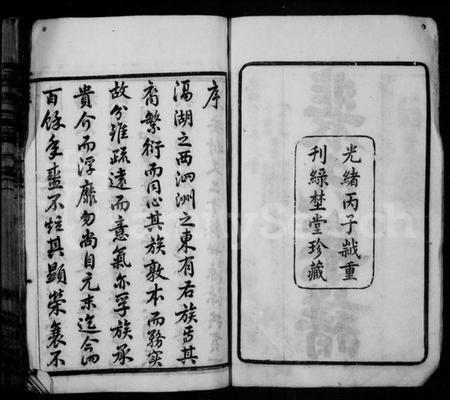 光緒丙子歲重
刊綠埜堂珍藏
序
滆湖之西泗洲之東有右族焉其
裔繁衍而同心其族敦本而務實
故分雖疏遠而意氣亦孚族承
貴介而浮靡勿尚自元末迄今四
百餘年盡不炫其顯榮襄不